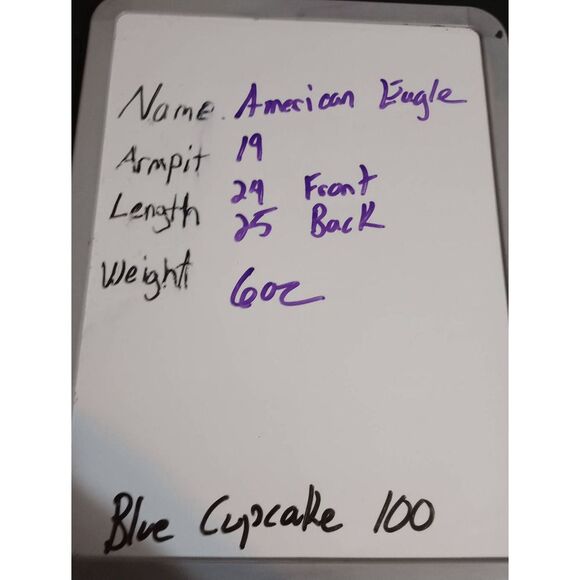 Name. American Eagle
Armpit 19
Length 24 Front
25 Back
Weight 6oz
Blue Cupcake 100